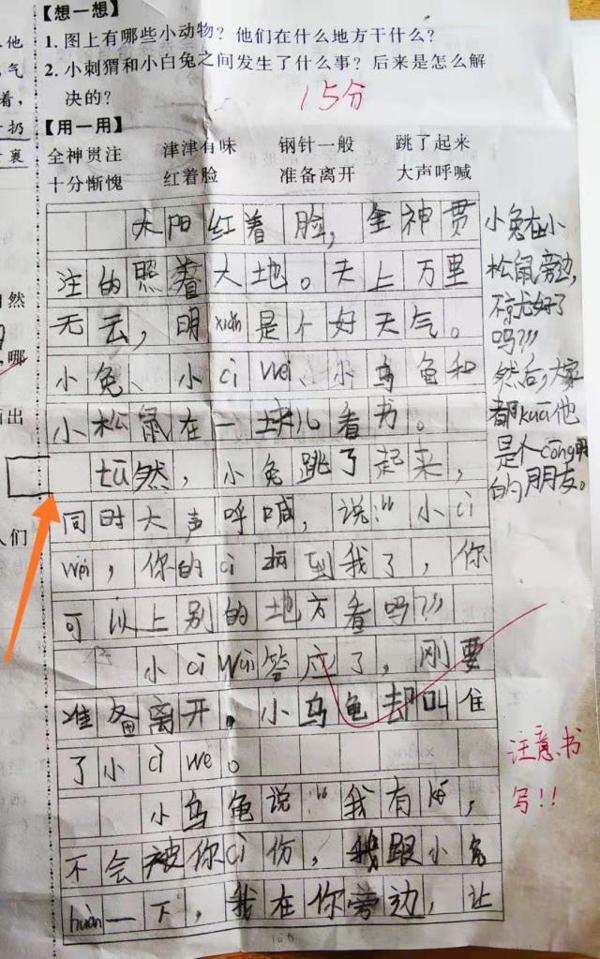 【想一想】
1. 图上有哪些小动物？他们在什么地方干什么？
2. 小刺猬和小白兔之间发生了什么事？后来是怎么解
决的？
15分
【用一用】
全神贯注 津津有味 钢针一般 跳了起来
十分惭愧 红着脸 准备离开 大声呼喊
太阳红着脸，全神贯
注的照着大地。天上万里
无云，明xiǎn是个好天气。
小兔、小ci wei、小乌龟和
小松鼠在一块儿看书。
tū然，小兔跳了起来，
同时大声呼喊，说：“小ci
wei，你的ci 到我了，你
可以上别的地方看吗？！！
小ci wei答应了，刚要
准备离开。小乌龟却叫住
了小ci we。
小乌龟说：“我有 ，
不会被你ci伤，我跟小兔
huàn一下，我在你旁边，让
小兔在小
松鼠旁边，
不就好了
吗？！！
然后，大家
都kuā他
是个cōng明
的朋友。
注意书
写！！
他
气
着，
扔
襄
然
哪
出
人们